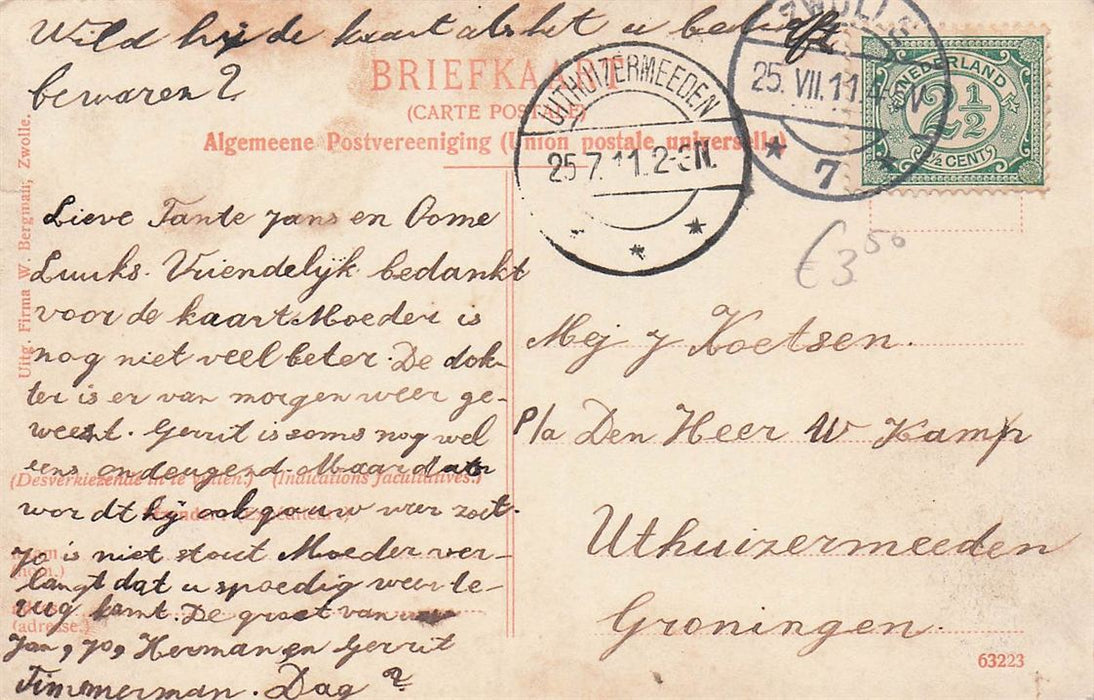 Wild hij de kaart als het u belieft
bewaren?
BRIEFKAART
(CARTE POSTALE)
Algemeene Postvereeniging (Union postale universelle)
UITHUIZERMEEDEN
25.7.11.2-3N.
ZWOLLE
25.VII.11 4- N
7
NEDERLAND
2½
2½ CENT
€3,50
Uitg. Firma W. Bergman, Zwolle.
Lieve Tante Jans en Oome
Luuks. Vriendelijk bedankt
voor de kaart Moeder is
nog niet veel beter. De dok-
ter is er van morgen weer ge-
weest. Gerrit is soms nog wel
eens ondeugend. Maar dan
wordt hij ook gauw weer zoet.
Jo is niet stout Moeder ver-
langt dat u spoedig weer te-
rug komt. De groet van
Jan, Jo, Herman en Gerrit
Timmerman. Dag?
(Desverkiezende in te vullen.) (Indications facultatives.)
(nom.)
(adresse.)
Mej J Koetsen.
p/a Den Heer W Kamp
Uthuizermeeden
Groningen.
63223